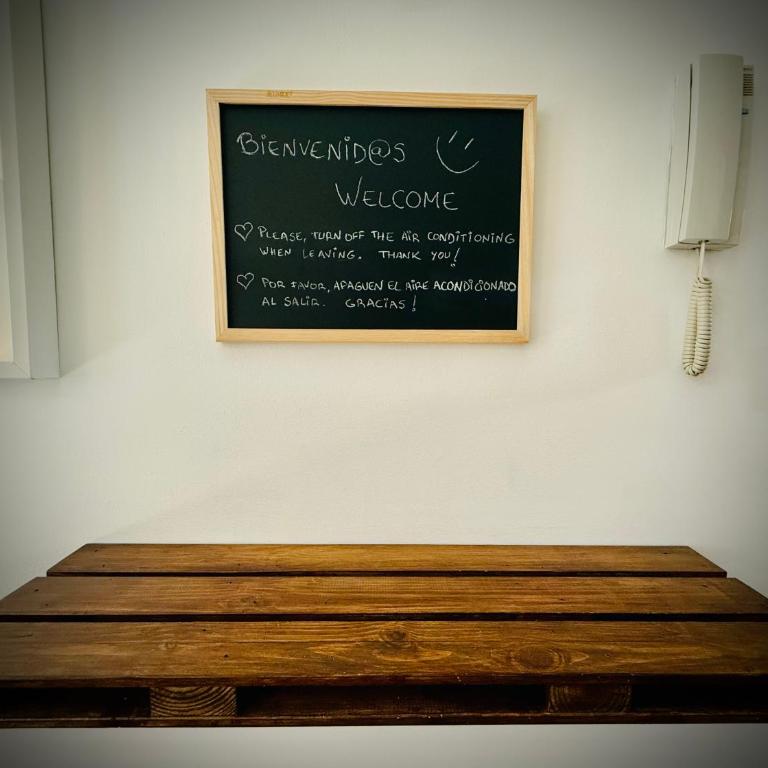 BiENVENiD@S
WELCOME
♡ PLEASE, TURN OFF THE AiR CONDiTiONiNG
WHEN LEAViNG. THANK YOU!
♡ POR FAVOR, APAGUEN EL AiRE ACONDiCiONADO
AL SALiR. GRACiAS!